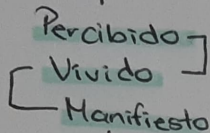 Percibido
Vivido
Manifiesto